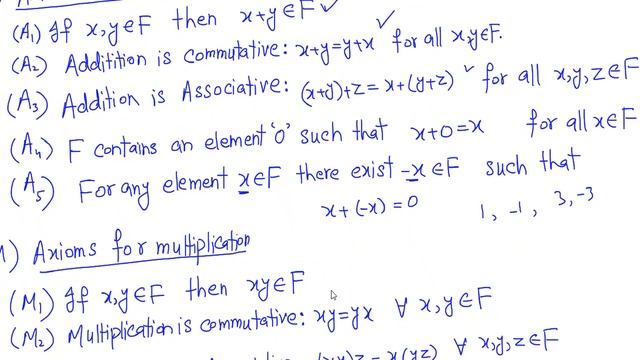 (A₁) If x,y∈F then x+y∈F ✓
(A₂) Additition is commutative: x+y=y+x ✓ for all x,y∈F.
(A₃) Addition is Associative: (x+y)+z=x+(y+z) ✓ for all x,y,z∈F
(A₄) F contains an element '0' such that x+0=x for all x∈F
(A₅) For any element x∈F there exist -x∈F such that
x+(-x)=0 1, -1, 3,-3
) Axioms for multiplication
(M₁) If x,y∈F then xy∈F
(M₂) Multiplication is commutative: xy=yx ∀ x,y∈F
(xy)z=x(yz) ∀ x,y,z∈F